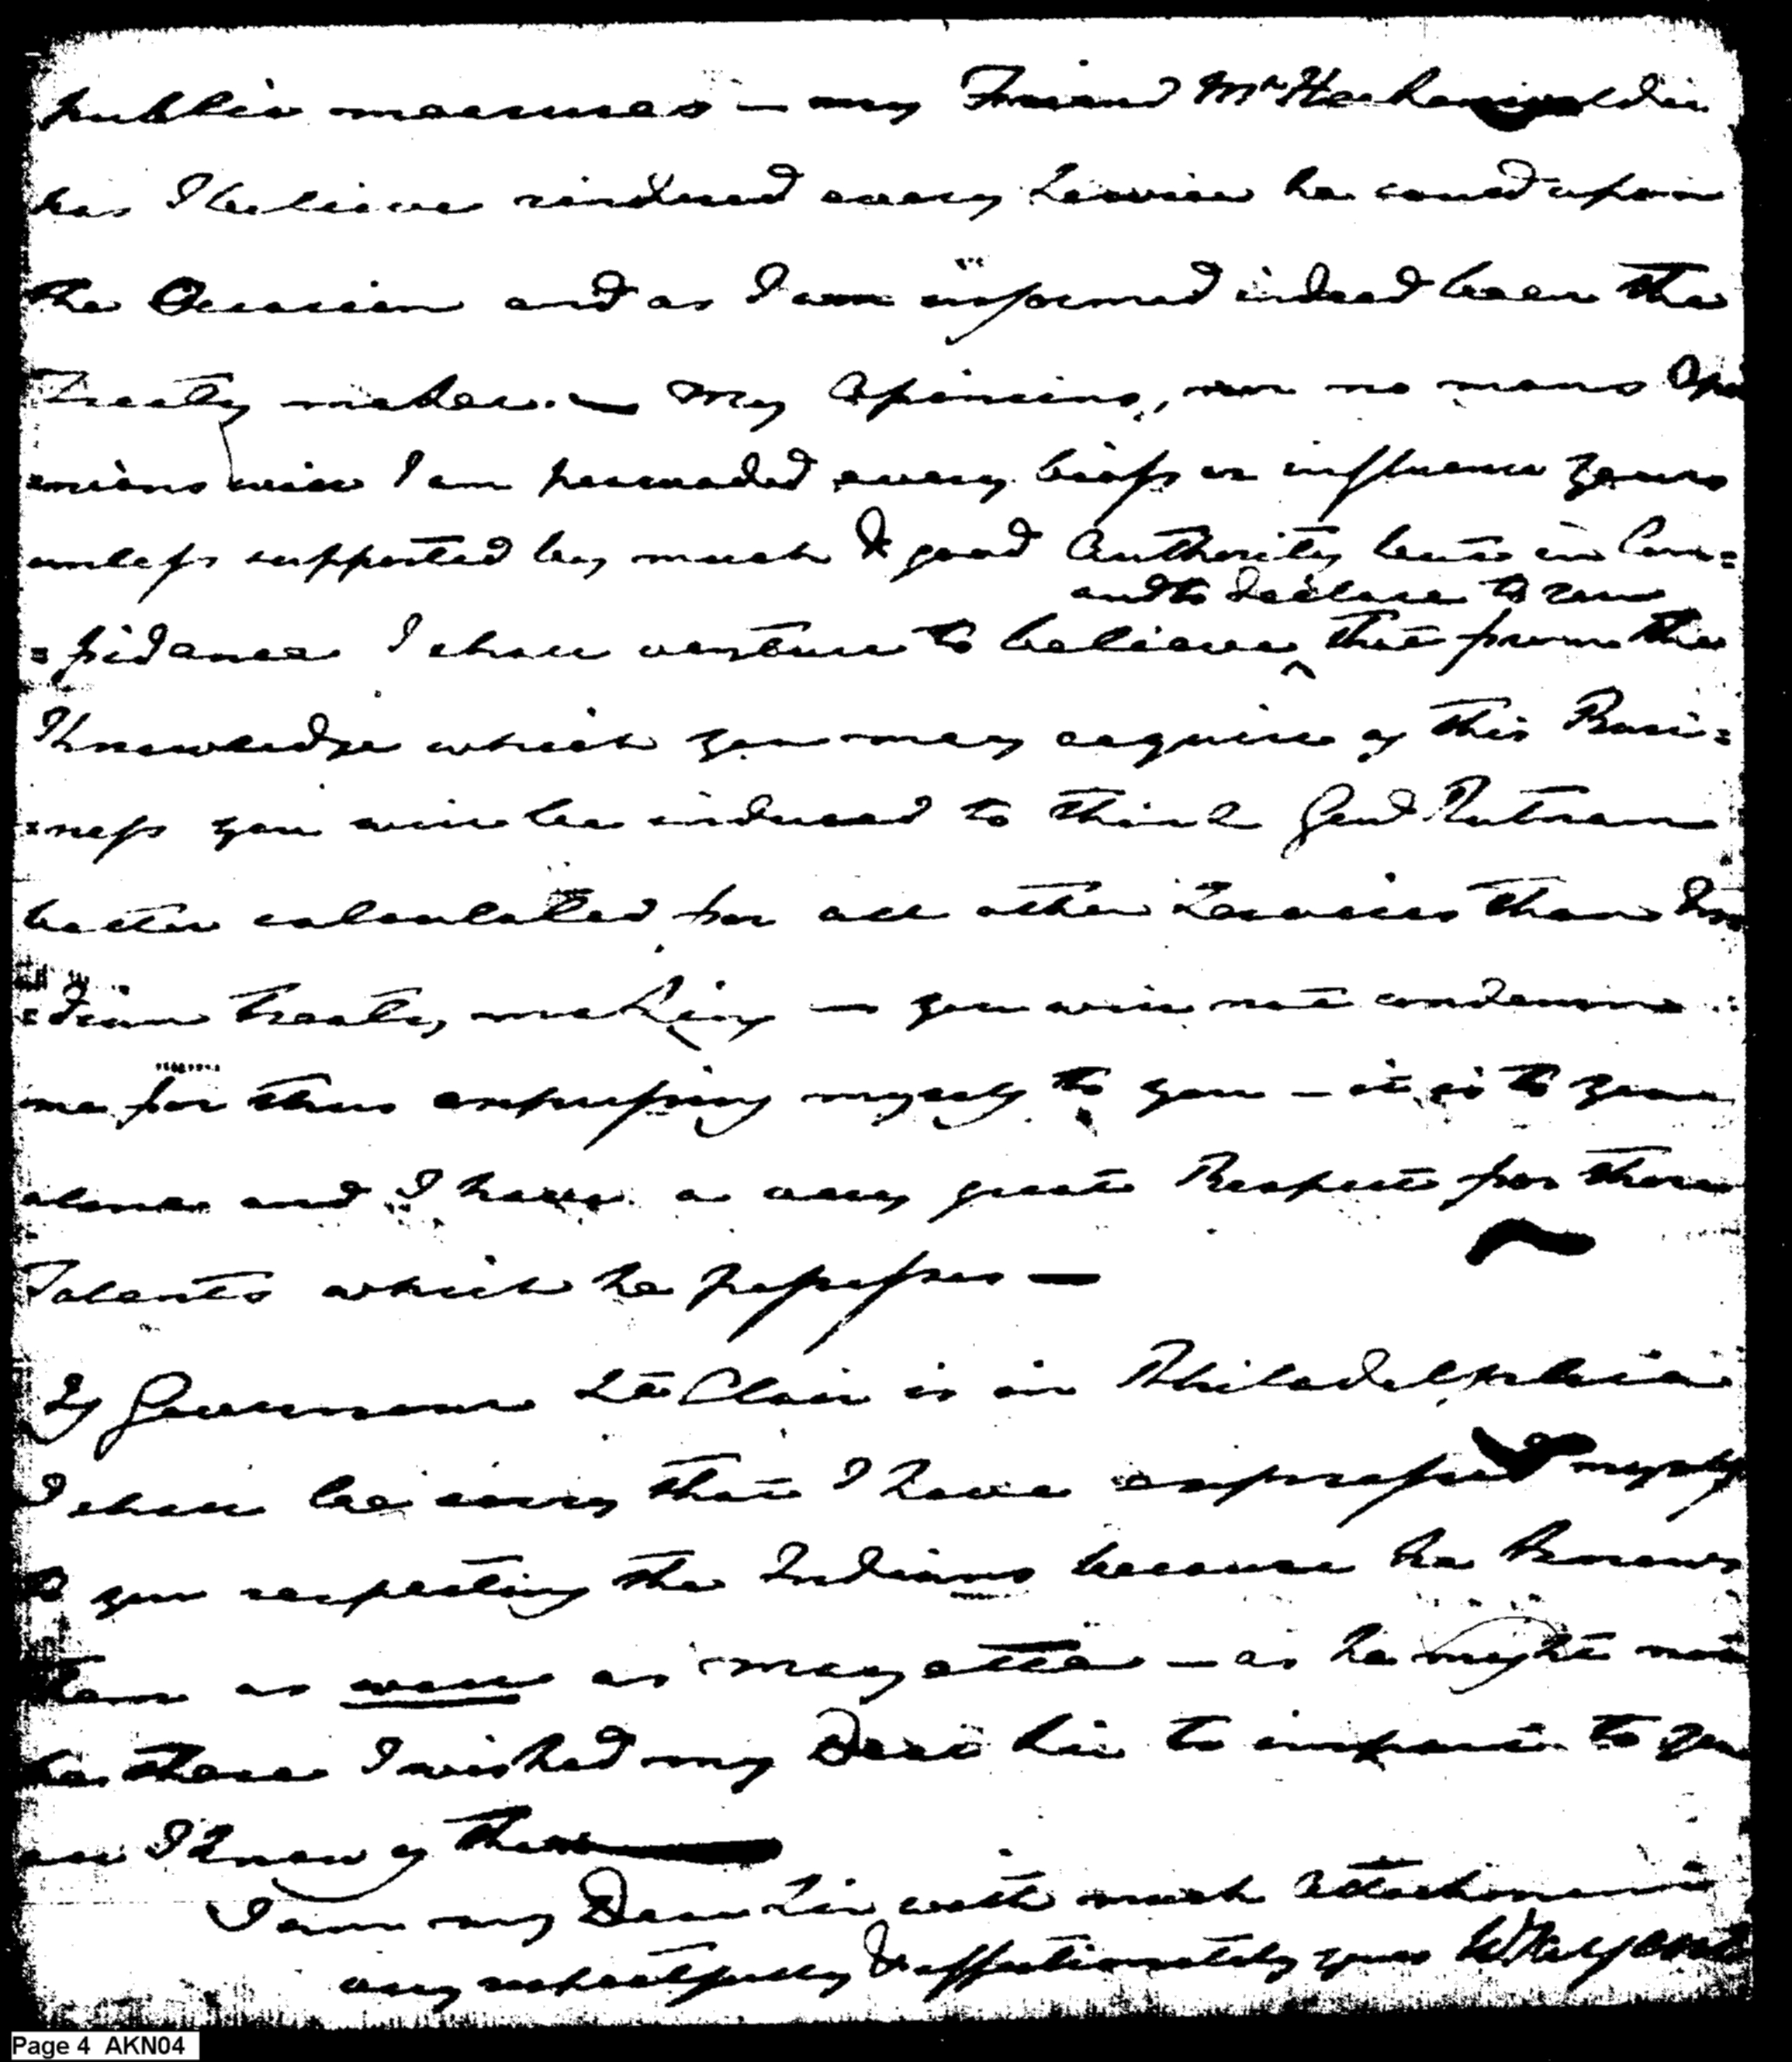 public measures — my Friend Mr Heckenwelder
has I believe rendered every Service he coud upon
the Occasion and as I am informed indeed been the
Treaty maker. — My Opinions, nor no mans Opi
=nions will I am persuaded every biass or influence yours
unless supported by much & good Authority but in Con=
and to declare to you
=fidence I shall venture to believe ^ that from the
Knowledge which you may acquire of this Busi=
=ness you will be induced to think Genl Putnam
better calculated for all other Services than In
=dian treaty making — you will not condemn
me for thus expressing myself to you — it is to you
alone and I have a very great Respect for those
Talents which he possesses —
If Governour St Clair is in Philadelphia
I shall be sorry that I have expressed myself
to you respecting the Indians because he knows
them as well as may — as he might not
be there I wished my Dear Sir to impart to you
all I know of them
I am my Dear Sir with much attachment
very respectfully & affectionately yours
Page 4 AKN04